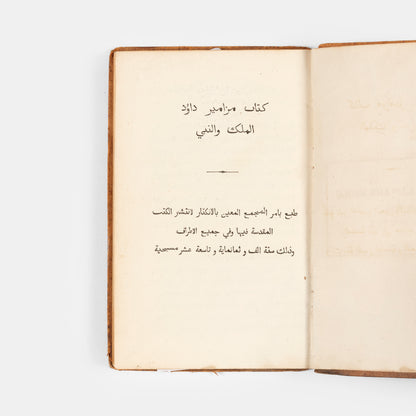 كتاب مزامير داوٗد
الملك والنبي
طبع بامر المجمع المعين بالانكتار لانتشار الكتب
المقدسة فيها وفي جميع الاطراف
وذلك سنة الف و ثمانماية و تاسعة عشر مسيحية